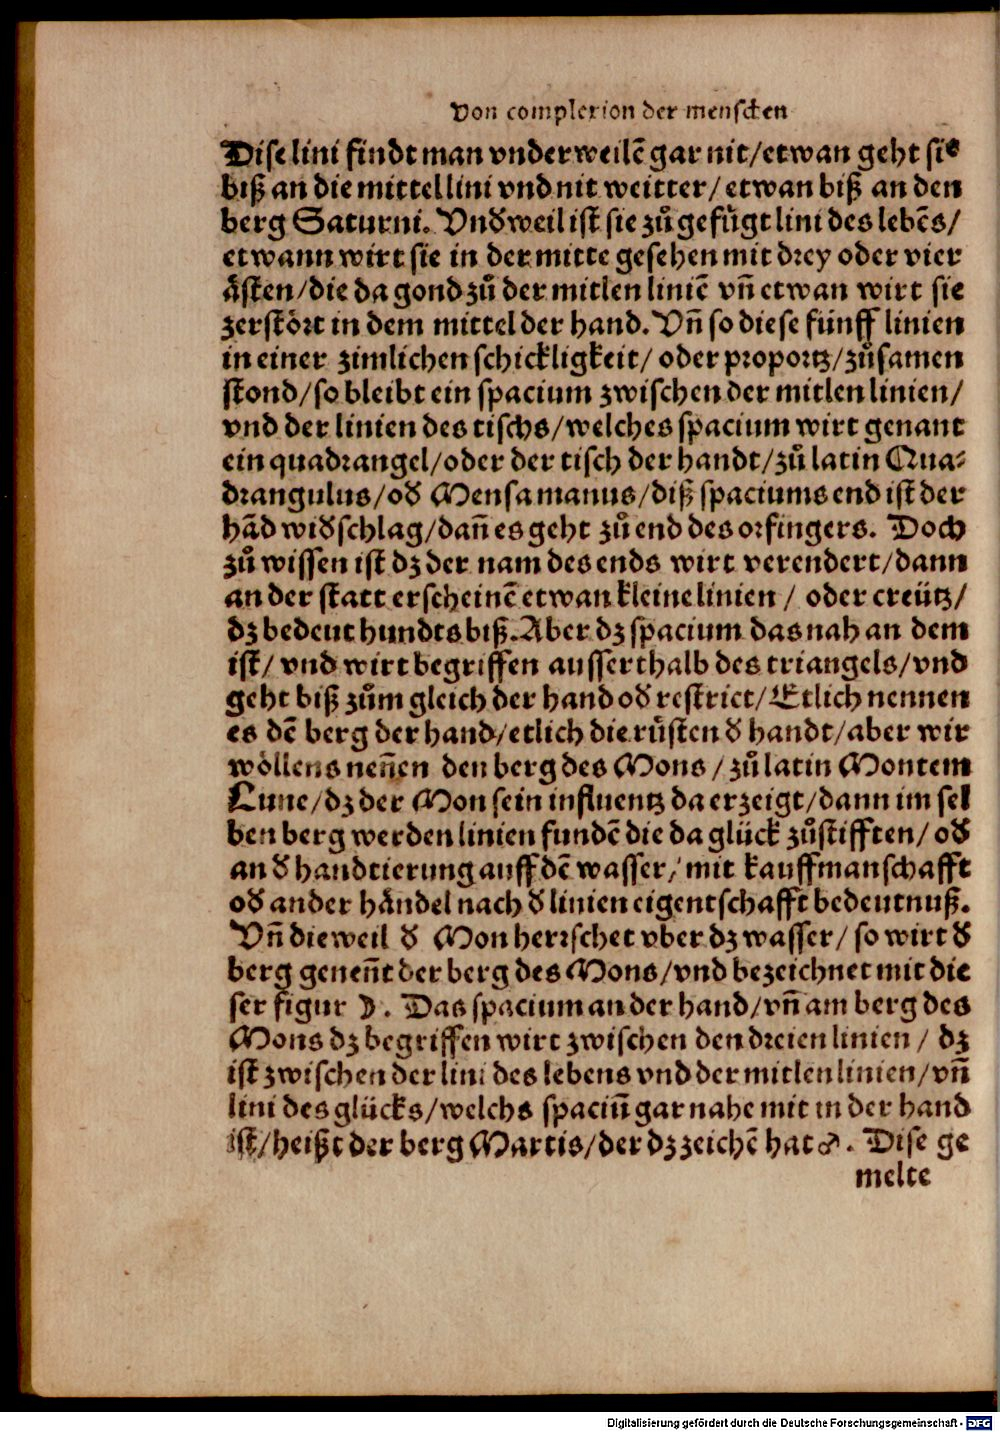 Von complexion der menschen
Dise lini findt man vnderweilē gar nit/etwan geht sie
biß an die mittellini vnd nit weitter/etwan biß an den
berg Saturni. Vnd weil ist sie zůgefügt lini des lebēs/
etwann wirt sie in der mitte gesehen mit drey oder vier
ästen/die da gond zů der mitlen liniē vn̄ etwan wirt sie
zerstört in dem mittel der hand. Vn̄ so diese fünff linien
in einer zimlichen schickligkeit/ oder proportz/zůsamen
stond/so bleibt ein spacium zwischen der mitlen linien/
vnd der linien des tischs/welches spacium wirt genant
ein quadrangel/oder der tisch der handt/zů latin Qua⸗
drangulus/oď Mensa manus/diß spaciums end ist der
hād wiďschlag/dan̄ es geht zů end des orfingers. Doch
zů wissen ist dz der nam des ends wirt verendert/dann
an der statt erscheinē etwan kleine linien / oder creütz/
dz bedeut hundts biß. Aber dz spacium das nah an dem
ist/ vnd wirt begriffen ausserthalb des triangels/vnd
geht biß zům gleich der hand oď restrict/Etlich nennen
es dē berg der hand/etlich die rüsten ď handt/aber wir
wöllens nen̄en den berg des Mons / zů latin Montem
Lune/dz der Mon sein influentz da erzeigt/dann im sel
ben berg werden linien fundē die da glück zůstifften/ oď
an ď handtierung auff dē wasser/ mit kauffmanschafft
oď ander händel nach ď linien eigentschafft bedeutnuß.
Vn̄ dieweil ď Mon herrschet vber dz wasser/ so wirt ď
berg genen̄t der berg des Mons/vnd bezeichnet mit die
ser figur ☽. Das spacium an der hand/vn̄ am berg des
Mons dz begriffen wirt zwischen den dreien linien / dz
ist zwischen der lini des lebens vnd der mitlen linien/vn̄
lini des glücks/welchs spaciū gar nahe mit in der hand
ist/heißt der berg Martis/der dz zeichē hat ♂. Dise ge
melte
Digitalisierung gefördert durch die Deutsche Forschungsgemeinschaft - DFG